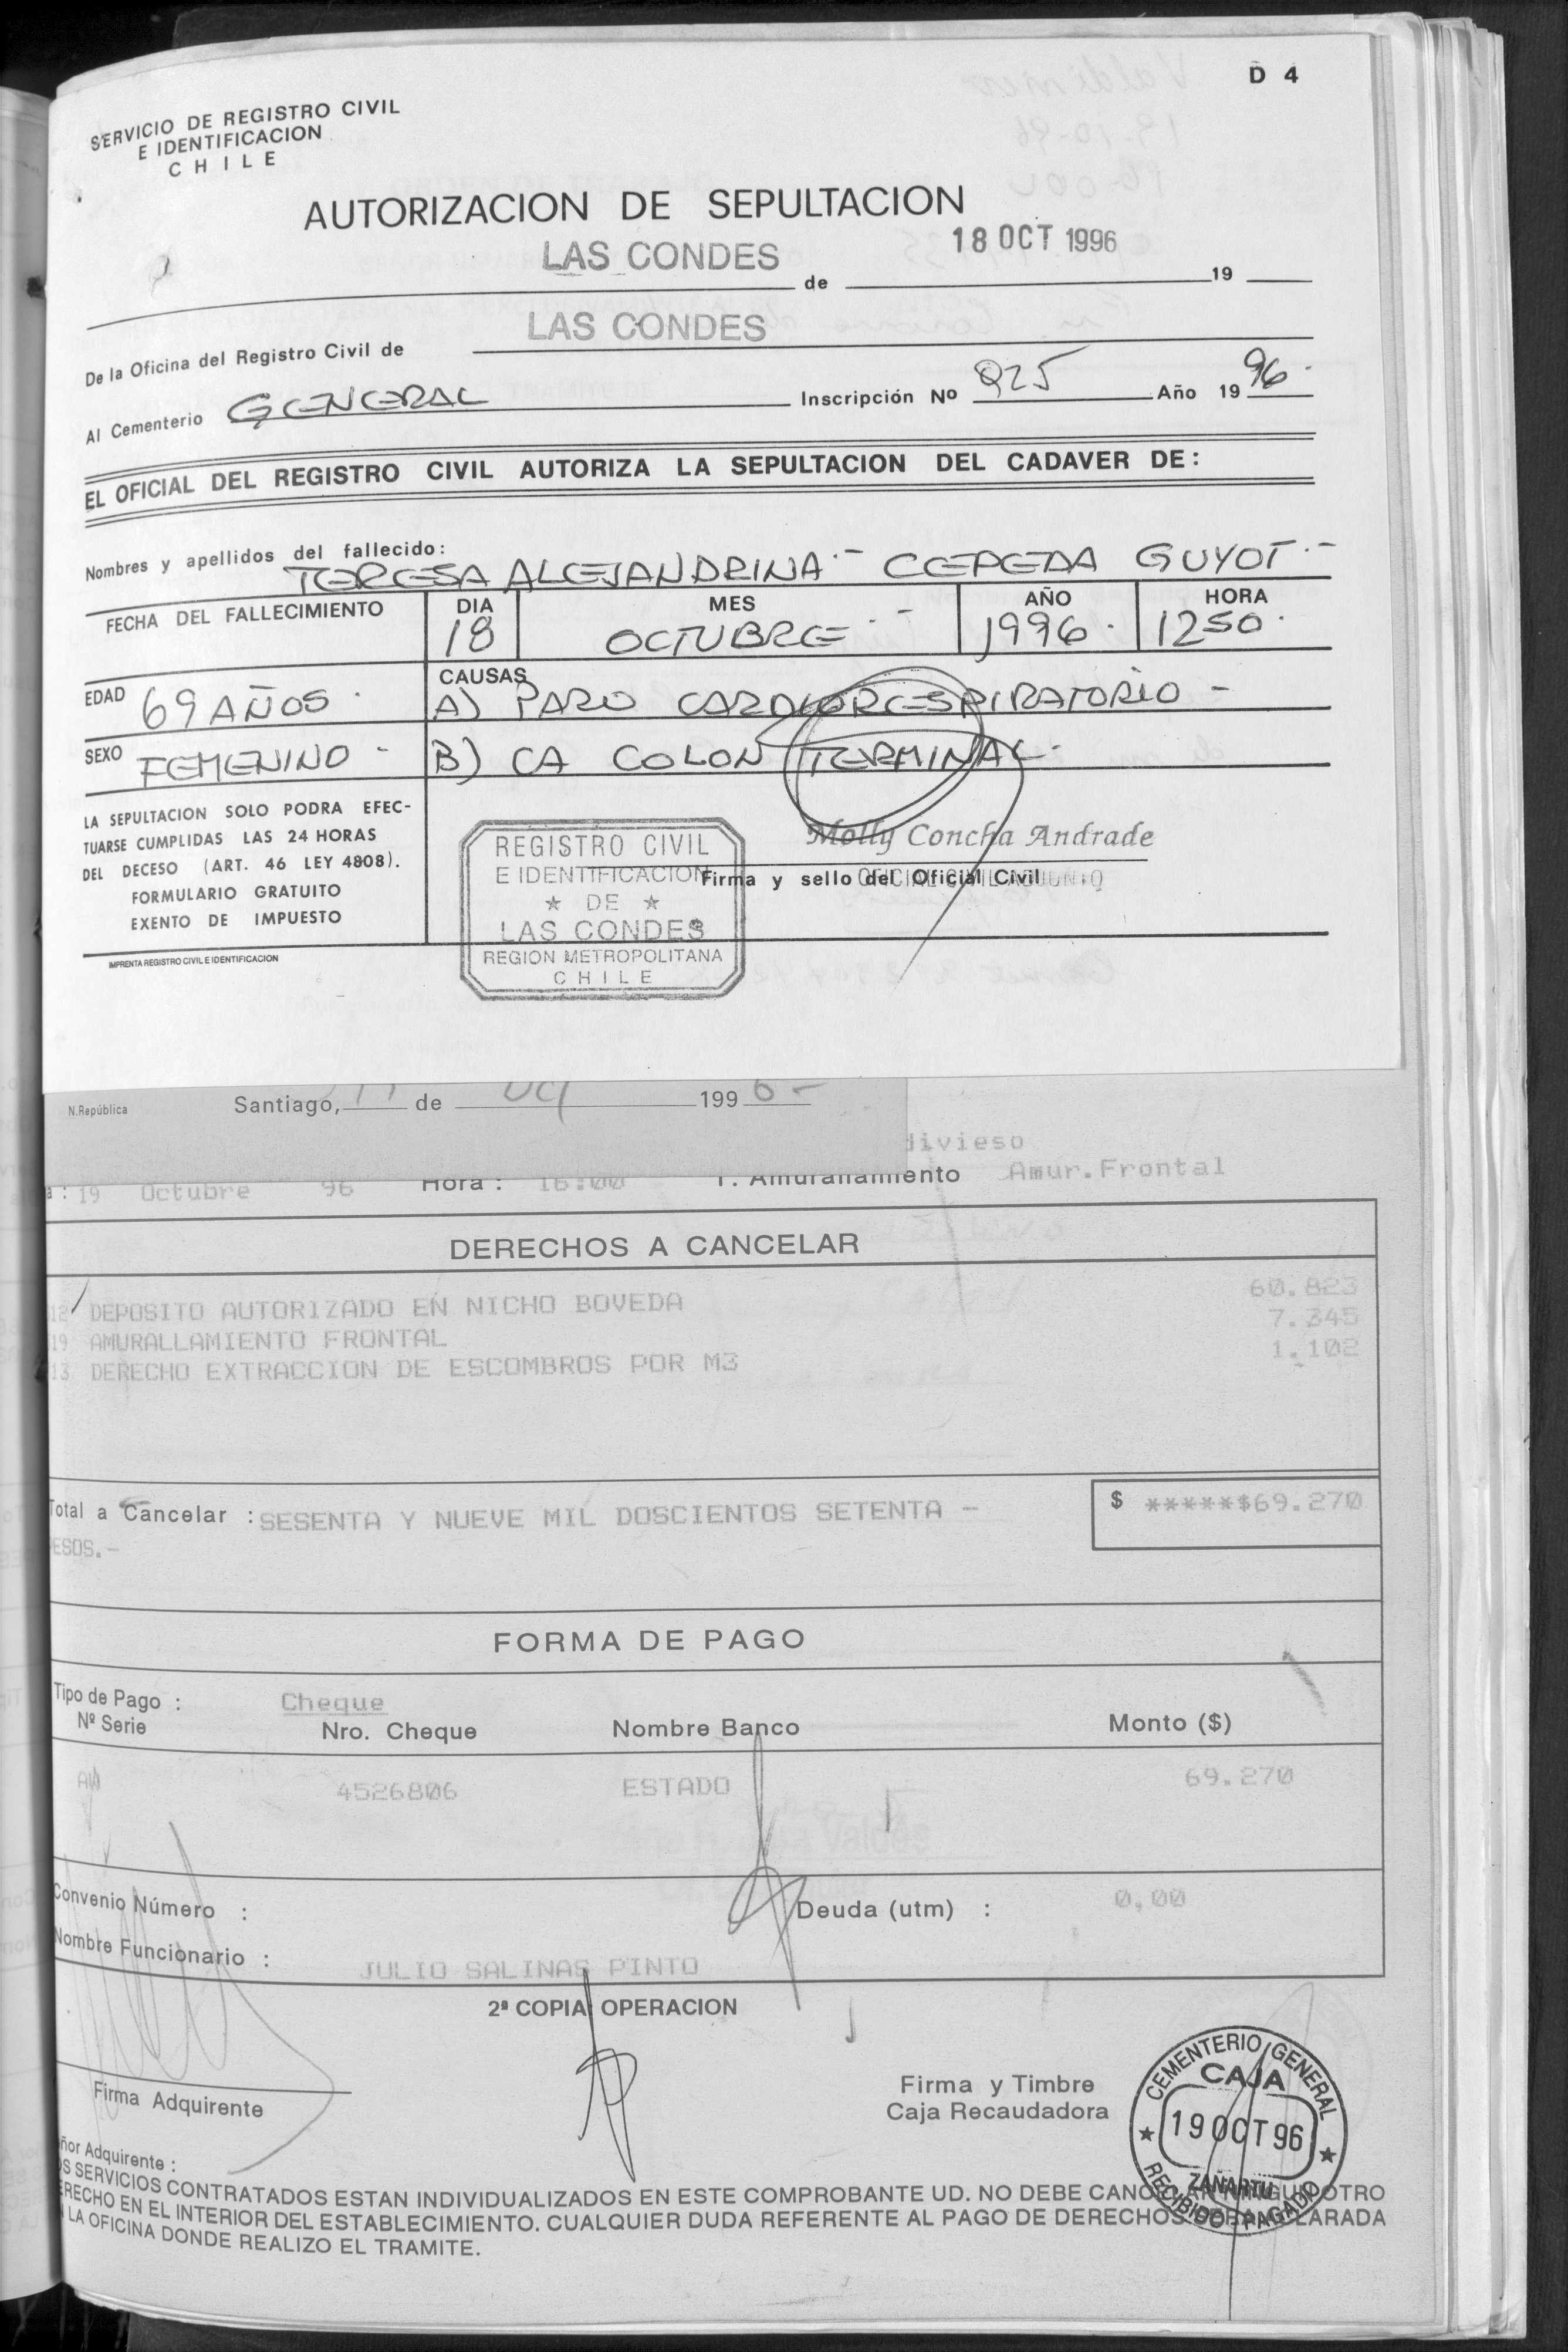 D 4
SERVICIO DE REGISTRO CIVIL
E IDENTIFICACION
CHILE
AUTORIZACION DE SEPULTACION
LAS CONDES de 18 OCT 1996 19
De la Oficina del Registro Civil de LAS CONDES
Al Cementerio GENERAL Inscripción Nº 825 Año 19 96.
EL OFICIAL DEL REGISTRO CIVIL AUTORIZA LA SEPULTACION DEL CADAVER DE:
Nombres y apellidos del fallecido:
TERESA ALEJANDRINA.- CEPEDA GUYOT.-
FECHA DEL FALLECIMIENTO DIA MES AÑO HORA
18 OCTUBRE.- 1996. 1250.
EDAD 69 AÑOS. CAUSAS
A) PARO CARDIORRESPIRATORIO -
SEXO FEMENINO - B) CA COLON TERMINAL.
LA SEPULTACION SOLO PODRA EFEC-
TUARSE CUMPLIDAS LAS 24 HORAS
DEL DECESO (ART. 46 LEY 4808).
FORMULARIO GRATUITO
EXENTO DE IMPUESTO
REGISTRO CIVIL
E IDENTIFICACION
★ DE ★
LAS CONDES
REGION METROPOLITANA
CHILE
Molly Concha Andrade
Firma y sello del Oficial Civil
OFICIAL CIVIL ADJUNTO
IMPRENTA REGISTRO CIVIL E IDENTIFICACION
N.República Santiago, de 199 6-
divieso
19 Octubre 96 Hora : 16:00 T. Amurallamiento Amur.Frontal
DERECHOS A CANCELAR
12 DEPOSITO AUTORIZADO EN NICHO BOVEDA 60.823
19 AMURALLAMIENTO FRONTAL 7.345
13 DERECHO EXTRACCION DE ESCOMBROS POR M3 1.102
Total a Cancelar : SESENTA Y NUEVE MIL DOSCIENTOS SETENTA - $ *****$69.270
ESOS.-
FORMA DE PAGO
Tipo de Pago : Cheque
Nº Serie Nro. Cheque Nombre Banco Monto ($)
AW 4526806 ESTADO 69.270
Convenio Número : Deuda (utm) : 0,00
Nombre Funcionario : JULIO SALINAS PINTO
2ª COPIA OPERACION
Firma Adquirente
Firma y Timbre
Caja Recaudadora
CEMENTERIO GENERAL
CAJA
★ 19 OCT 96 ★
ZAÑARTU
RECIBIDO PAGADO
ñor Adquirente :
OS SERVICIOS CONTRATADOS ESTAN INDIVIDUALIZADOS EN ESTE COMPROBANTE UD. NO DEBE CANCELAR NINGUN OTRO
ERECHO EN EL INTERIOR DEL ESTABLECIMIENTO. CUALQUIER DUDA REFERENTE AL PAGO DE DERECHOS SERA ACLARADA
LA OFICINA DONDE REALIZO EL TRAMITE.